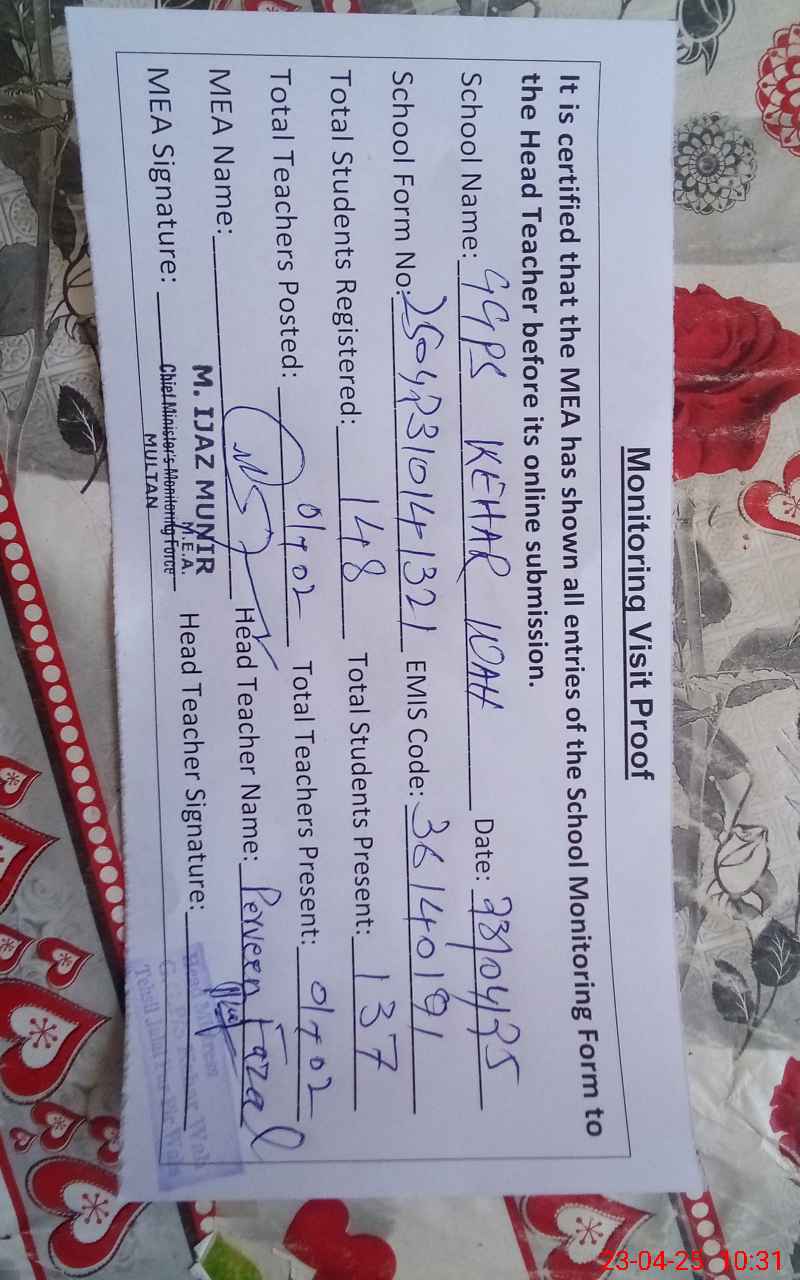 Monitoring Visit Proof
It is certified that the MEA has shown all entries of the School Monitoring Form to
the Head Teacher before its online submission.
School Name: GGPS KEHAR WAH Date: 23/04/25
School Form No: 25042310141321 EMIS Code: 36140191
Total Students Registered: 148 Total Students Present: 137
Total Teachers Posted: 01+02 Total Teachers Present: 01+02
MEA Name: Head Teacher Name: Perveen Fazal
M. IJAZ MUNIR
M.E.A.
MEA Signature: Chief Minister's Monitoring Force Head Teacher Signature:
MULTAN
Kehar Wah
Tehsil Jalal Pur Pir Wala
23-04-25 10:31